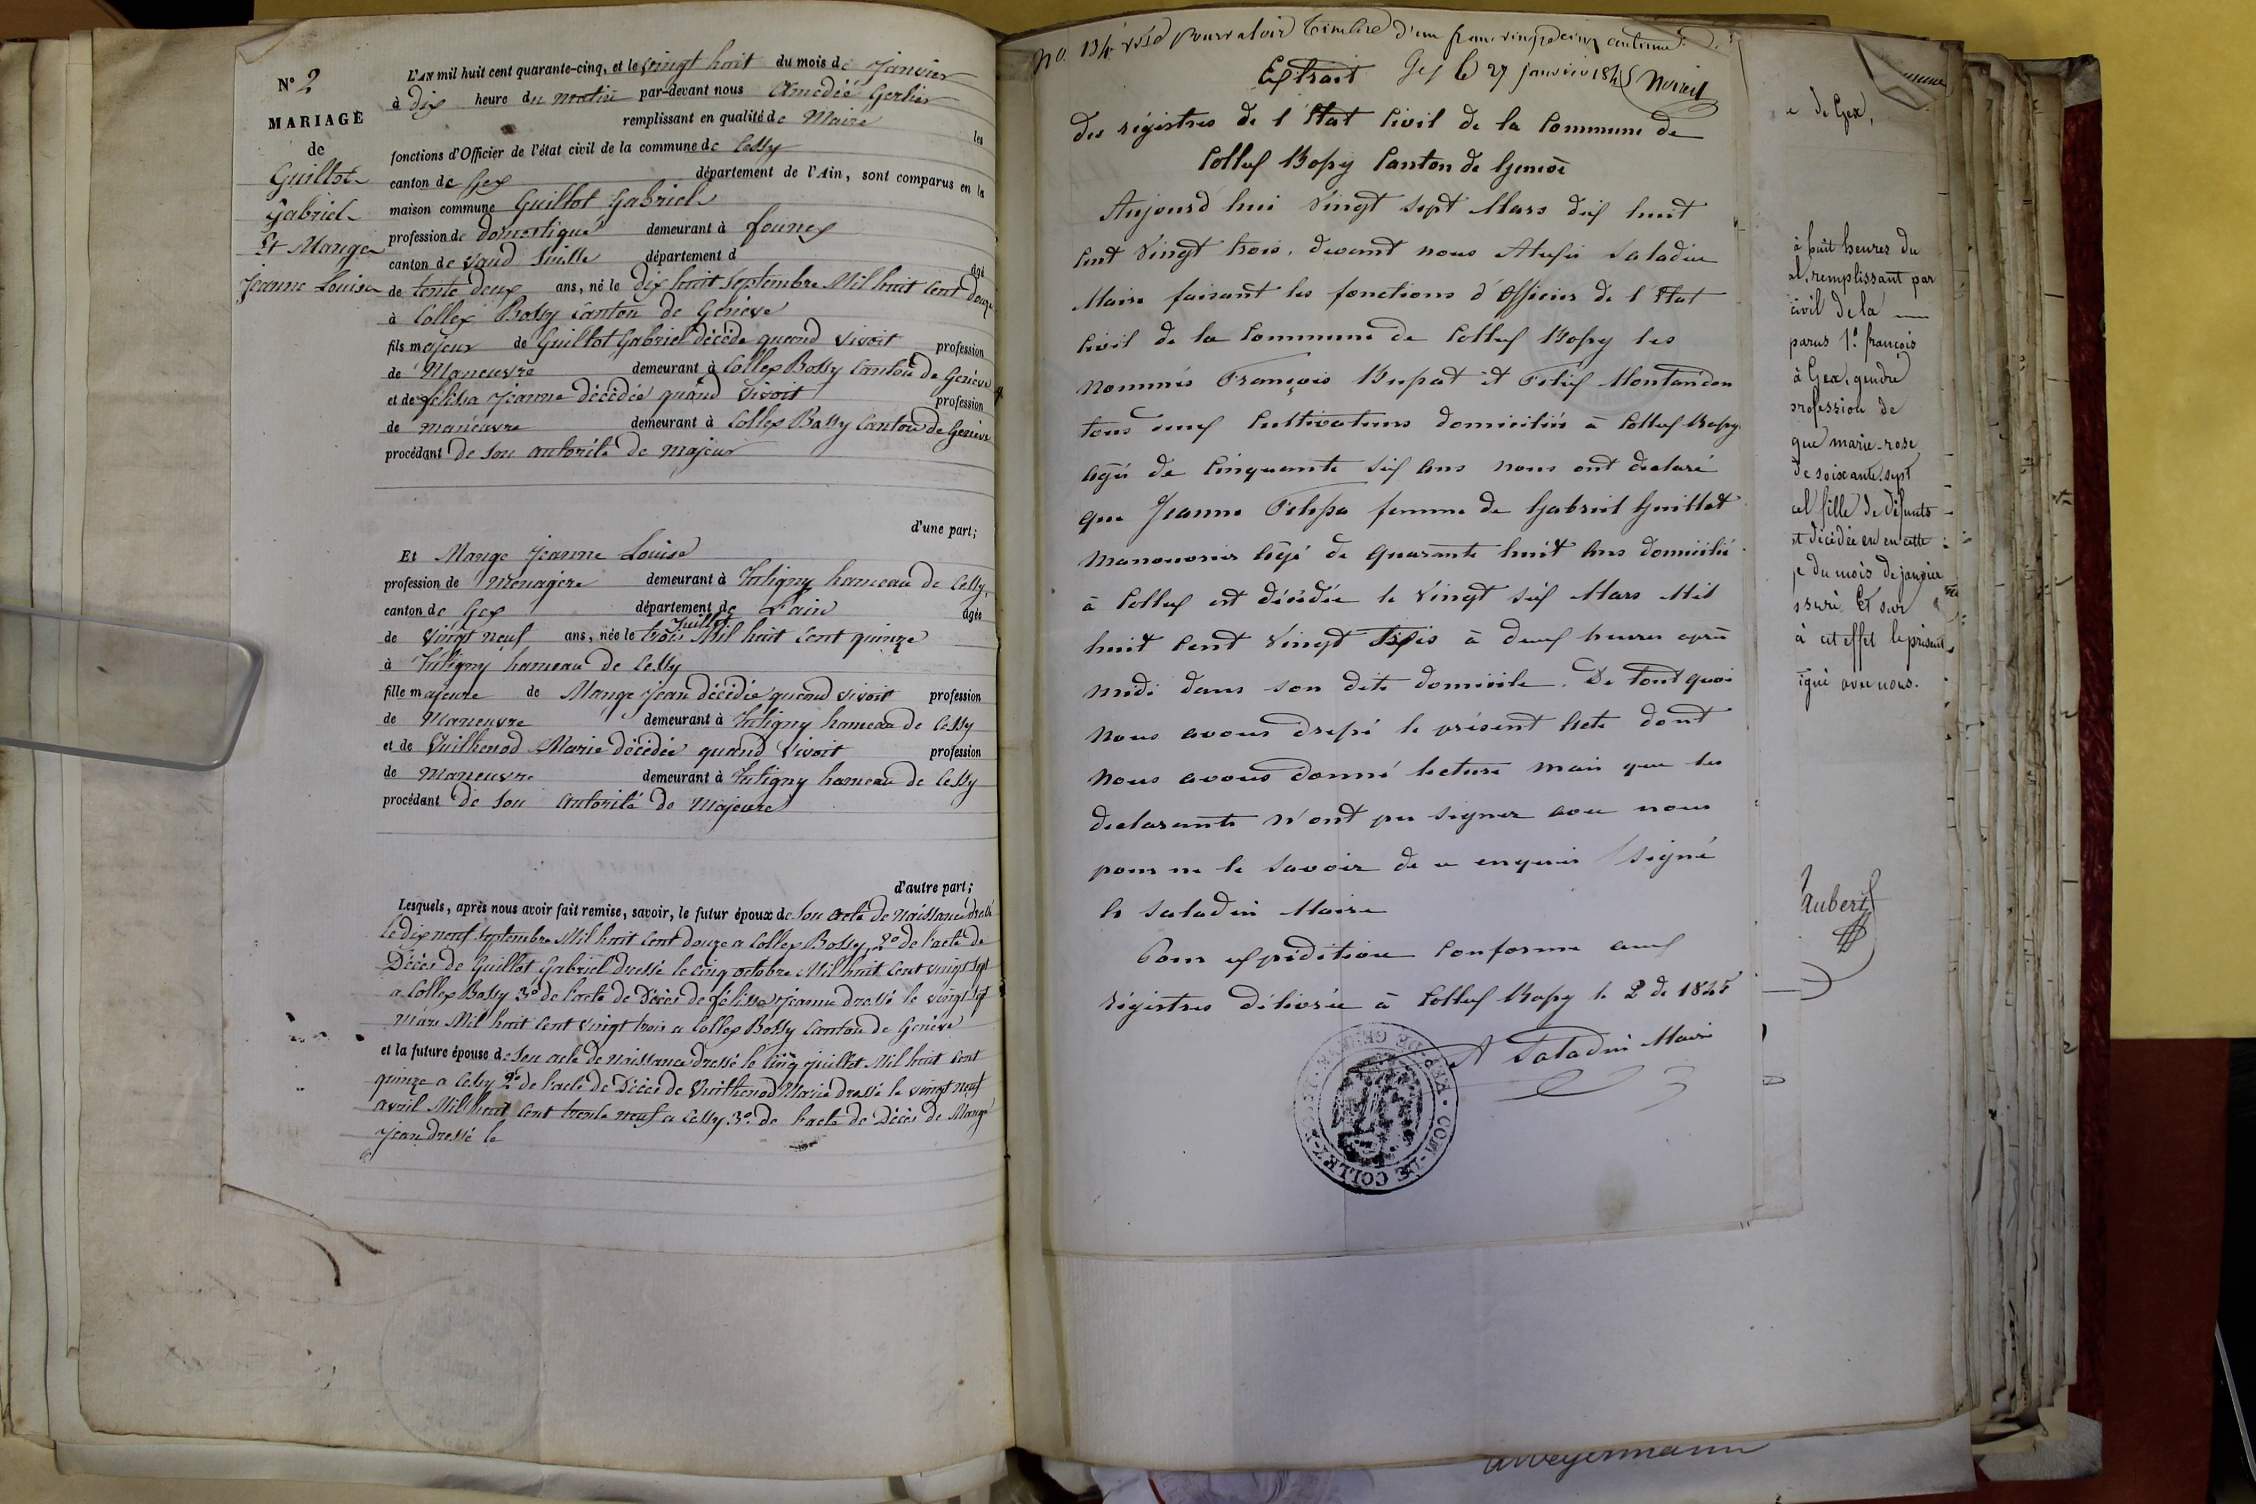 N° 2
MARIAGE
de
Guillot
Gabriel
Et Mange
Jeanne Louise
L'AN mil huit cent quarante-cinq, et le vingt huit du mois de Janvier
à dix heure du matin par-devant nous Amédée Gerlier
remplissant en qualité de Maire les
fonctions d'Officier de l'état civil de la commune de Cessy
canton de Gex département de l'Ain, sont comparus en la
maison commune Guillot Gabriel
profession de domestique demeurant à founex
canton de Vaud Suisse département d âgé
de trente deux ans, né le dix huit Septembre Mil huit Cent douze
à Collex Bossy Canton de Genève
fils majeur de Guillot Gabriel décédé quand vivoit profession
de Maneuvre demeurant à Collex Bossy Canton de Genève
et de félissa Jeanne décédée quand vivoit profession
de maneuvre demeurant à Collex Bossy Canton de Genève
procédant de son autorité de majeur
d'une part;
Et Mange Jeanne Louise
profession de Menagère demeurant à Tutigny hameau de Cessy,
canton de Gex département de L'ain âgée
de vingt neuf ans, née le trois Juillet Mil huit Cent quinze
à Tutigny hameau de Cessy
fille majeure de Mange Jean décédé quand vivoit profession
de Maneuvre demeurant à Tutigny hameau de Cessy
et de Vuilhenod Marie décédée quand Vivoit profession
de Maneuvre demeurant à Tutigny hameau de Cessy
procédant de son autorité de Majeure
d'autre part;
Lesquels, après nous avoir fait remise, savoir, le futur époux de Son acte de Naissance dressé
le dix neuf Septembre Mil huit Cent douze a Collex Bossy, 2° de l'acte de
Décès de Guillot Gabriel dressé le cinq octobre Mil huit Cent vingt sept
a Collex Bossy 3° de l'acte de Décès de félissa Jeanne dressé le vingt sept
mars Mil huit Cent vingt trois a Collex Bossy Canton de Genève
et la future épouse de Son acte de naissance dressé le cinq juillet Mil huit Cent
quinze a Cessy 2° de l'acte de Décès de Vuilhenod Marie dressé le vingt neuf
avril Mil huit Cent trente neuf a Cessy 3° de l'acte de Décès de Mange
Jean dressé le
No. 134 visé pour valoir timbre d'un franc vingt cinq centimes
Extrait Gex le 27 janvier 1845
des régistres de l'Etat Civil de la Commune de
Collex Bossy Canton de Genève
Aujourd hui Vingt sept Mars dix huit
Cent Vingt trois, devant nous Saladin
Maire faisant les fonctions d'Officier de l'Etat
Civil de la Commune de Collex Bossy les
nommés François Bupat et Montandon
tous deux Cultivateurs domiciliés à Collex Bossy
agés de Cinquante six ans nous ont declaré
que Jeanne Felissa femme de Gabriel Guillot
manouvrier âgé de quarante huit ans domicilié
à Collex est décédée le Vingt six Mars Mil
huit Cent Vingt trois à deux heures après
midi dans son dit domicile. De tout quoi
nous avons dressé le présent Acte dont
nous avons donné lecture mais que les
declarants n'ont pu signer avec nous
pour ne le savoir de ce enquis signé
le Saladin Maire
Pour expédition Conforme aux
régistres délivrée à Collex Bossy le 2 de 1845
A Saladin Maire
COM. DE COLLEX-BOSSY.
REP. DE GENEVE.
e de Gex,
à huit heures du
remplissant par
civil de la
parus 1° françois
à Gex, gendre
profession de
que marie-rose
de soixante-sept
fille de défunts
et décédée en cette
du mois de janvier
Et sur
à cet effet le présent
avec nous.
Hubert
Weyermann